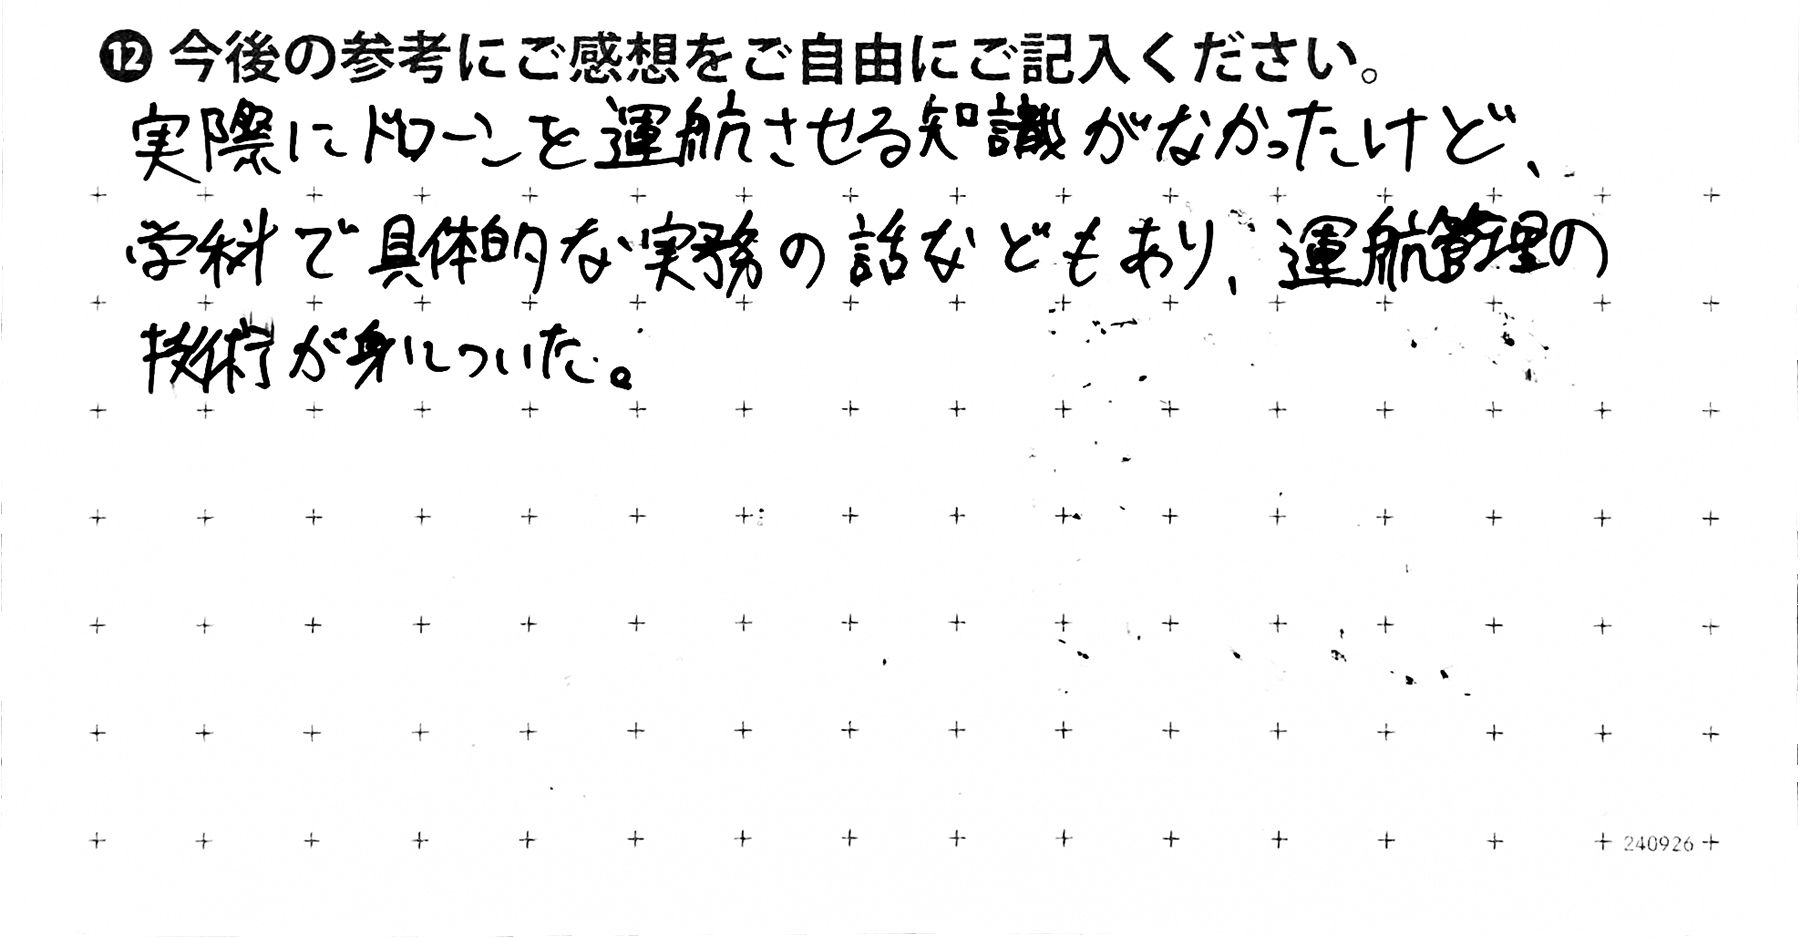 ⓬ 今後の参考にご感想をご自由にご記入ください。
実際にドローンを運航させる知識がなかったけど、
学科で具体的な実務の話などもあり、運航管理の
技術が身についた。
240926